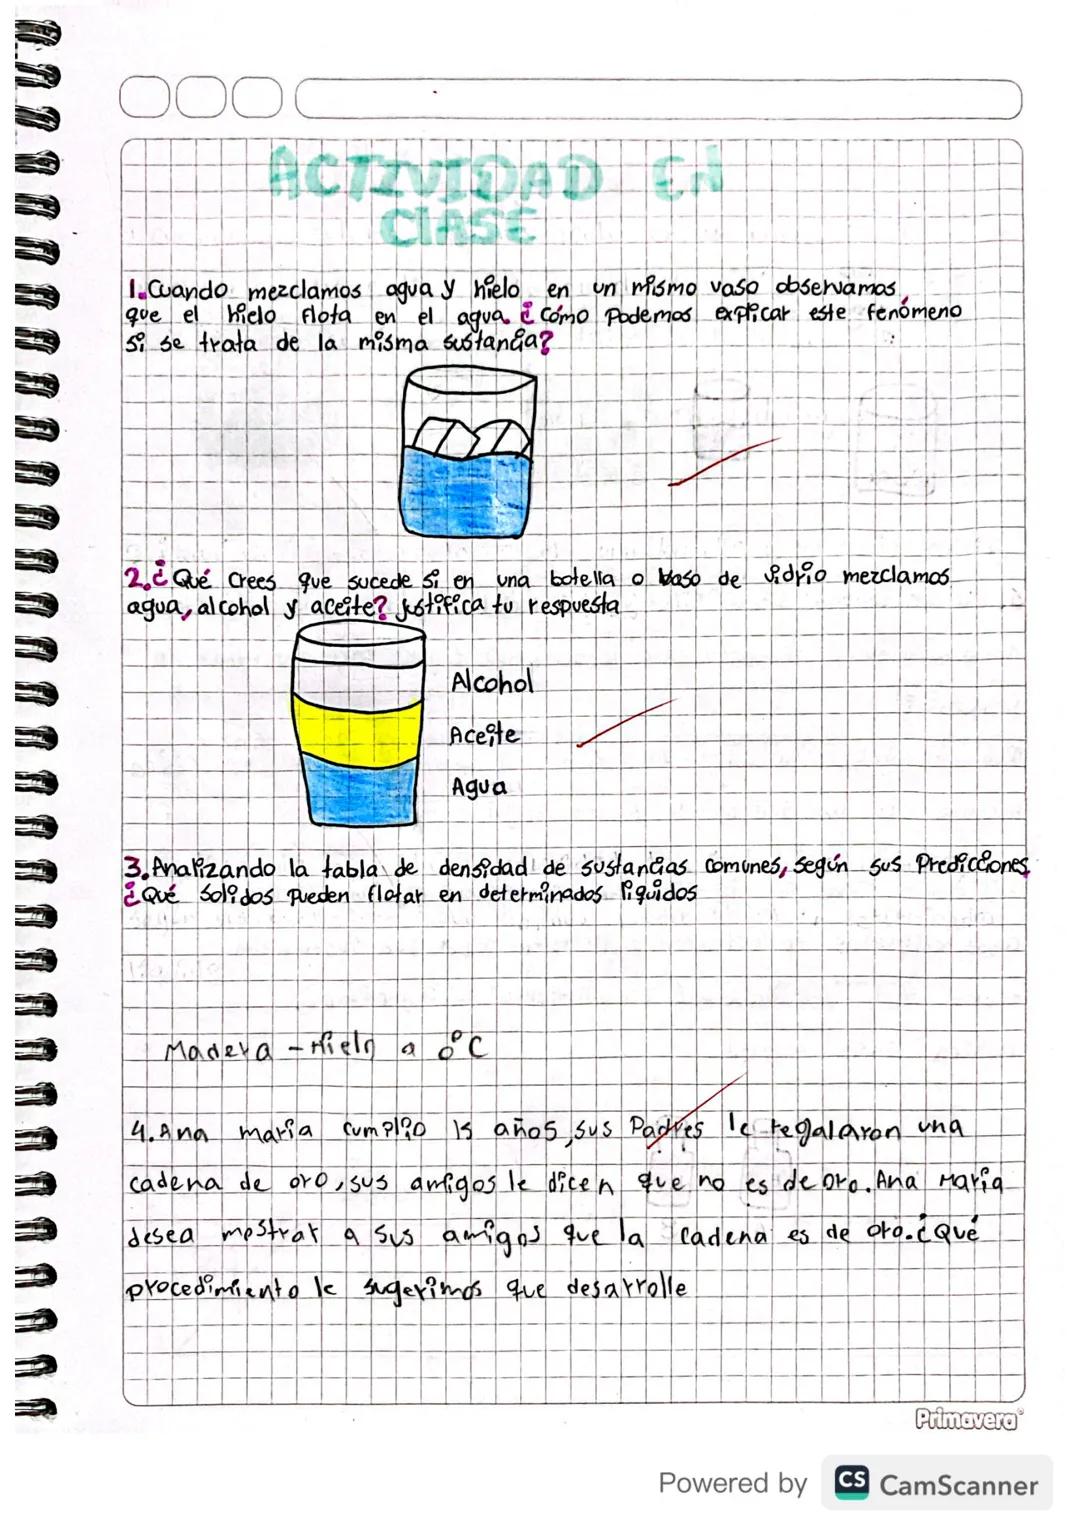 ACTIVIDAD EN
CLASE
1. Cuando mezclamos agua y hielo en un mismo vaso observamos,
que el hielo flota en el agua ¿Cómo Podemos explicar este fenómeno
si se trata de la misma sustancia?
2. ¿Qué Crees que sucede si en una botella o vaso de vidrio mezclamos
agua, alcohol y aceite? justifica tu respuesta
Alcohol
Aceite
Agua
3. Analizando la tabla de densidad de sustancias comunes, según sus Predicciones
¿Qué Solidos Pueden flotar en determinados liquidos
Madera - Hielo a 0°C
4. Ana maria cumplio 15 años, sus Padres le regalaron una
cadena de oro, sus amigos le dicen que no es de oro. Ana Maria
desea mostrar a sus amigos que la cadena es de oro. ¿Qué
procedimiento le sugerimos que desarrolle
Primavera
Powered by CS CamScanner